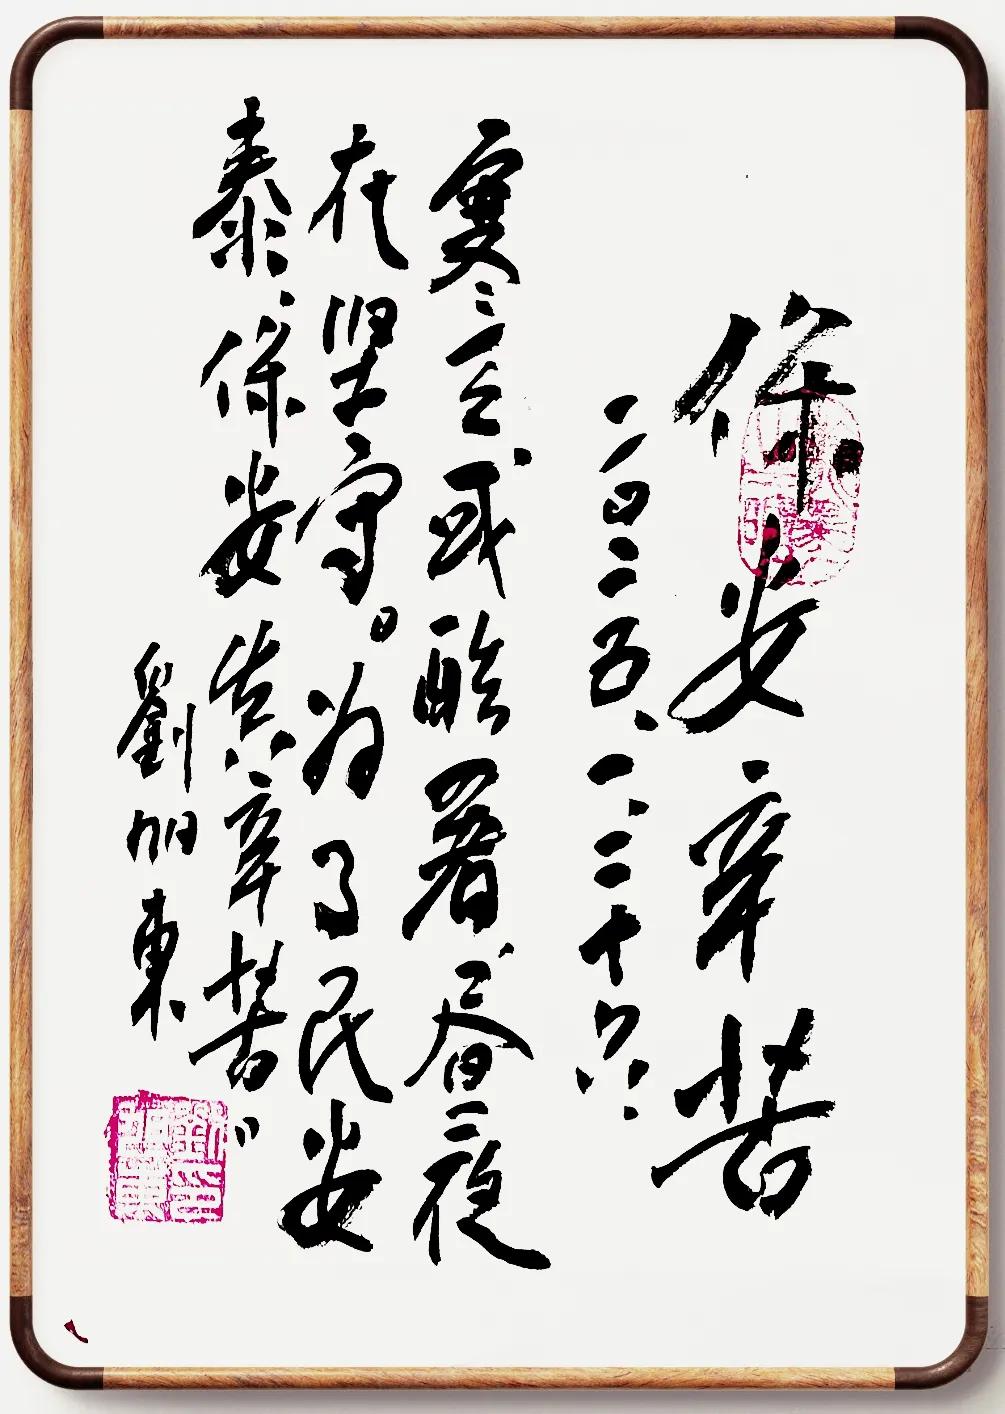 保安辛苦
二〇二五、一、二十六.
寒或酷暑、昼夜
在坚守。为了民安
泰、保安真辛苦〃
劉東